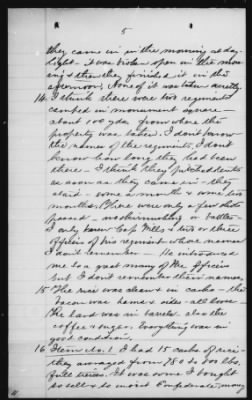 5
they came in in the morning at day-
light - it was broken open in the morn-
ing & then they finished it in the
afternoon. None of it was taken secretly.
14. I think there were two regiments
camped in monument square -
about 100 yds from where the
property was taken. I don't know
the names of the regiments. I don't
know how long they had been
there - I think they pitched tents
as soon as they came in - they
staid - some a month & some two
months. There were only a few shots
passed - no skirmishing or battle -
I only knew Capt Mills & two or three
officers of his regiment whose names
I don't remember - He introduced
me to a great many of the officers
but I don't remember their names.
15 The rice was clean & in casks - the
bacon was hams & sides - all loose -
The lard was in barrels also the
coffee & sugar. Everything was in
good condition.
16 Item No. 1. I had 15 casks of rice -
they averaged from 750 to 800 lbs.
full tierces. It was some I bought
to sell & to invest Confederate money